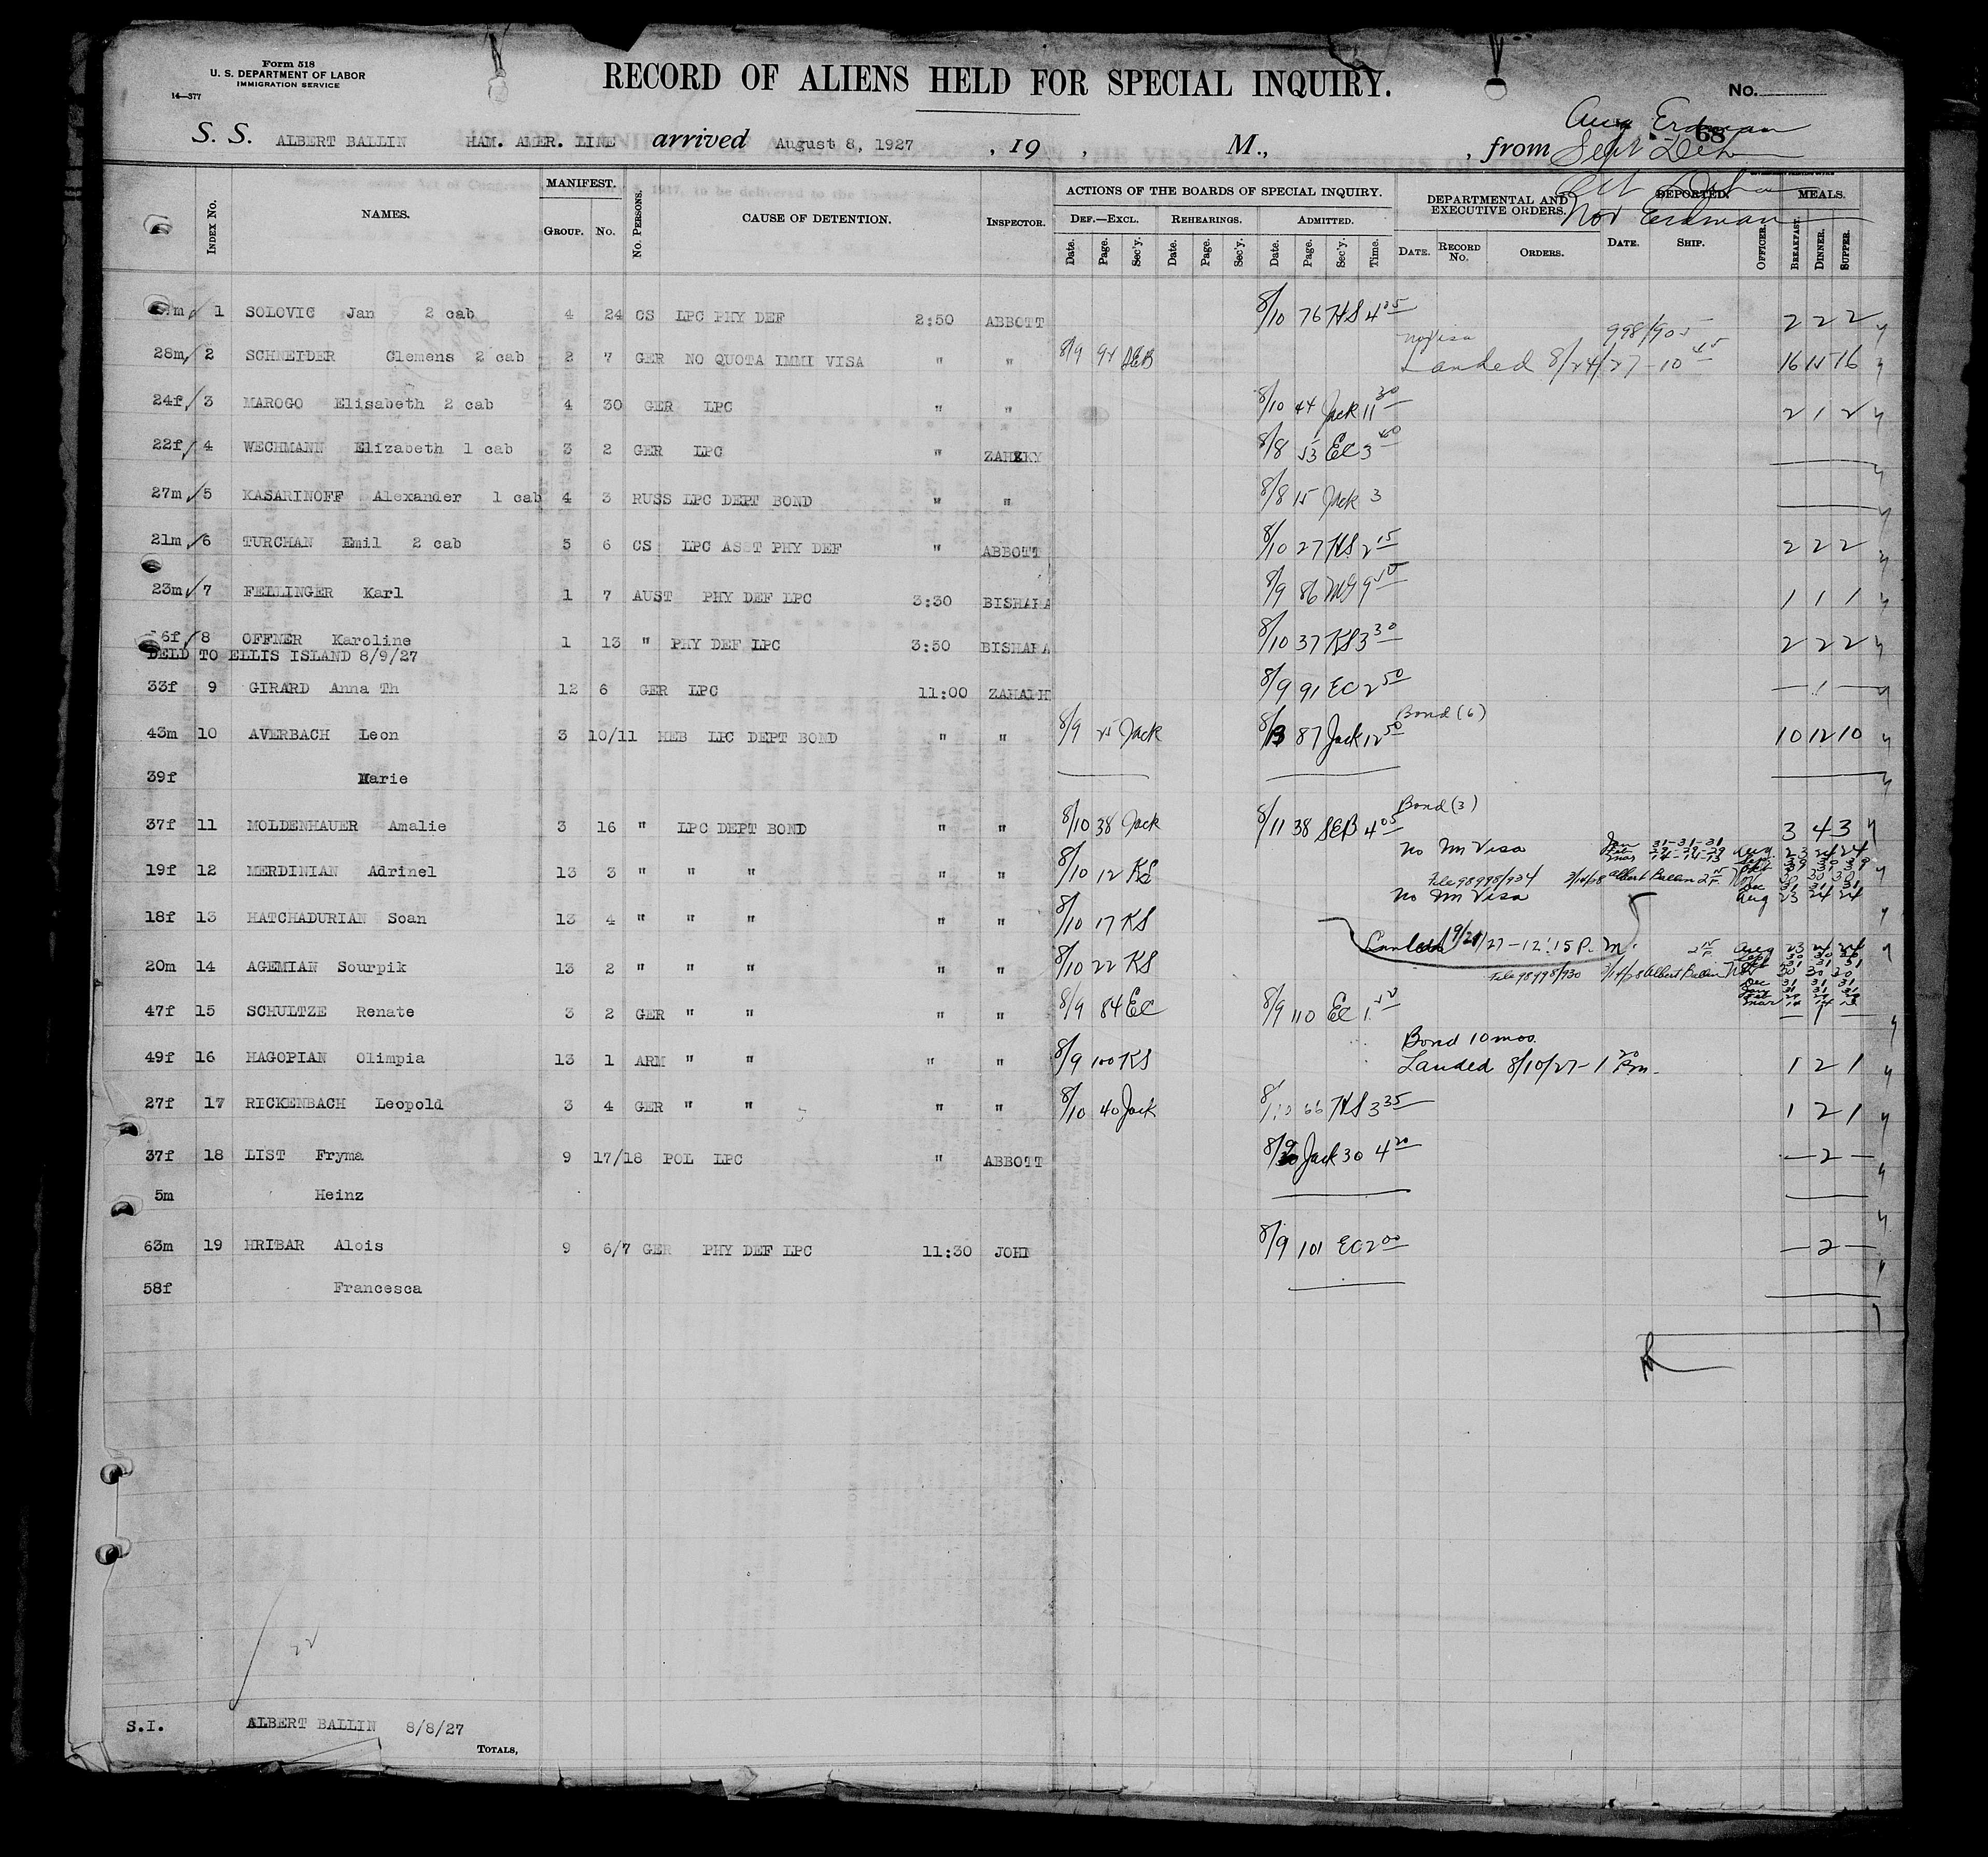 Form 518
U. S. DEPARTMENT OF LABOR
IMMIGRATION SERVICE
14—377
RECORD OF ALIENS HELD FOR SPECIAL INQUIRY.
No.
68
Aug Erdman
S. S. ALBERT BALLIN HAM. AMER. LINE arrived August 8, 1927 , 19 , M., , from Sept
Nov Erdman
INDEX NO. NAMES. MANIFEST. GROUP. NO. NO. PERSONS. CAUSE OF DETENTION. INSPECTOR. ACTIONS OF THE BOARDS OF SPECIAL INQUIRY. DEPARTMENTAL AND EXECUTIVE ORDERS. DEPORTED. MEALS.
DEF.—EXCL. REHEARINGS. ADMITTED.
Date. Page. Sec'y. Date. Page. Sec'y. Date. Page. Sec'y. Time. DATE. RECORD NO. ORDERS. DATE. SHIP. OFFICER. BREAKFAST. DINNER. SUPPER.
1 SOLOVIC Jan 2 cab 4 24 CS LPC PHY DEF 2:50 ABBOTT 8/10 76 HS 4 35 2 2 2
No Visa 998/905
28m 2 SCHNEIDER Clemens 2 cab 2 7 GER NO QUOTA IMMI VISA " " 8/9 94 SEB Landed 8/24/27 - 10 45 16 15 16
24f 3 MAROGO Elisabeth 2 cab 4 30 GER LPC " " 8/10 44 Jack 11 30 2 1 2
22f 4 WECHMANN Elizabeth 1 cab 3 2 GER LPC " 8/8 53 EC 3 40
27m 5 KASARINOFF Alexander 1 cab 4 3 RUSS LPC DEPT BOND " " 8/8 15 Jack 3
21m 6 TURCHAN Emil 2 cab 5 6 CS LPC ASST PHY DEF " ABBOTT 8/10 27 HS 2 15 2 2 2
23m 7 FELLINGER Karl 1 7 AUST PHY DEF LPC 3:30 BISHARA 8/9 86 1 1 1
6f 8 OFFNER Karoline 1 13 " PHY DEF LPC 3:50 BISHARA 8/10 37 KS 3 30 2 2 2
DELD TO ELLIS ISLAND 8/9/27
33f 9 GIRARD Anna Th 12 6 GER LPC 11:00 8/9 91 EC 2 50 — 1 —
Bond (6)
43m 10 AVERBACH Leon 3 10/11 HEB LPC DEPT BOND " " 8/9 25 Jack 8/13 87 Jack 12 50 10 12 10
39f Marie
Bond (3)
37f 11 MOLDENHAUER Amalie 3 16 " LPC DEPT BOND " " 8/10 38 Jack 8/11 38 SEB 4 05 3 4 3
No Im Visa Jan 31-31-31 Aug 23 24 24
19f 12 MERDINIAN Adrinel 13 3 " " " " " 8/10 12 KS File 98998/934 3/14/28 Albert Ballin
No Im Visa Aug 23 24 24
18f 13 HATCHADURIAN Soan 13 4 " " " " " 8/10 17 KS
Landed 9/21/27 - 12:15 P. M. Aug 23 24 24
20m 14 AGEMIAN Sourpik 13 2 " " " " " 8/10 22 KS File 98998/930 3/14/28 Albert Ballin Nov 30 30 30
Dec 31 31 31
47f 15 SCHULTZE Renate 3 2 GER " " " " 8/9 84 EC 8/9 110 EC — 1 —
Bond 10 mos.
49f 16 HAGOPIAN Olimpia 13 1 ARM " " " " 8/9 100 KS Landed 8/10/27 - 1 20 Pm. 1 2 1
27f 17 RICKENBACH Leopold 3 4 GER " " " " 8/10 40 Jack 8/10 66 HS 3 35 1 2 1
37f 18 LIST Fryma 9 17/18 POL LPC " ABBOTT 8/9 Jack 30 4 20 — 2 —
5m Heinz
63m 19 HRIBAR Alois 9 6/7 GER PHY DEF LPC 11:30 JOHN 8/9 101 EC 2 00 — 2 —
58f Francesca
22
S.I. ALBERT BALLIN 8/8/27
TOTALS,